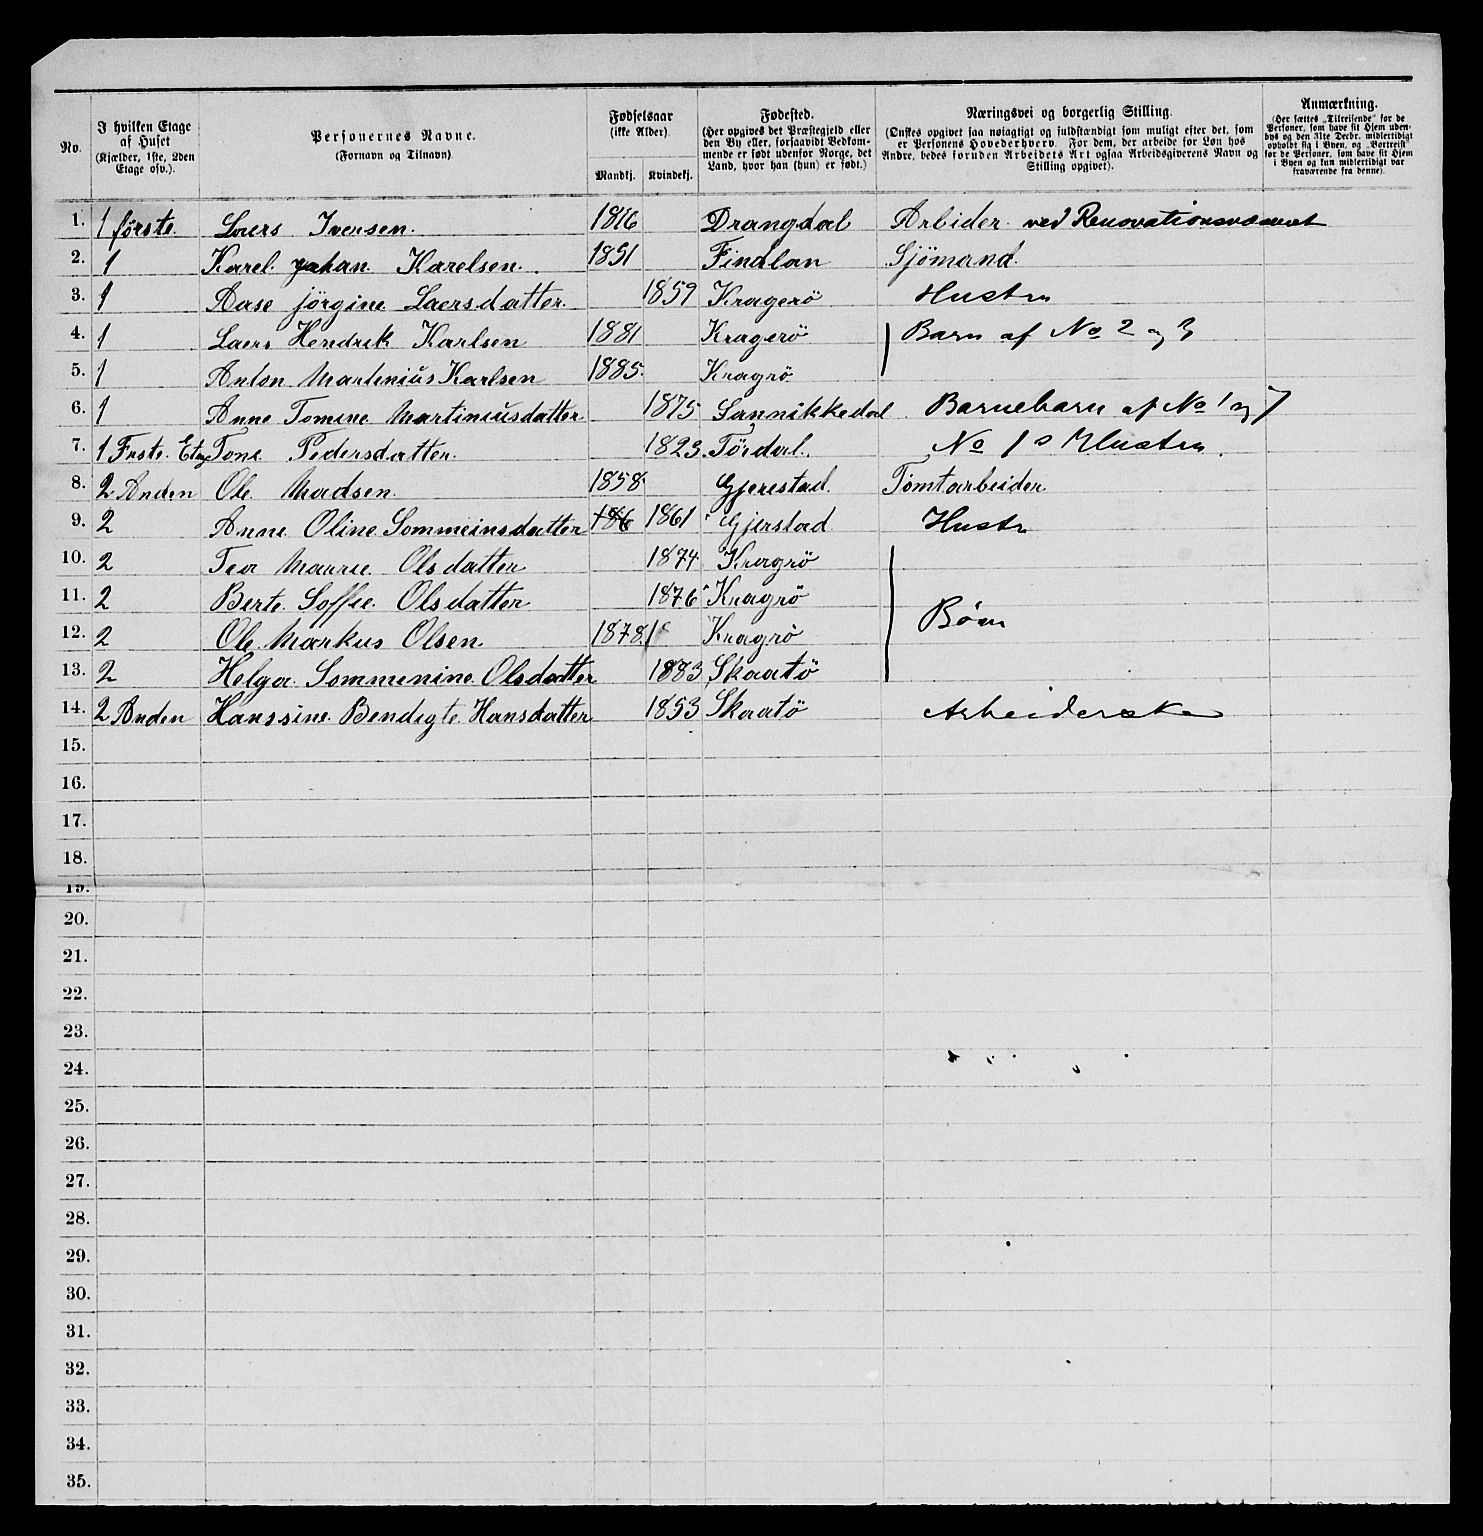 No.
I hvilken Etage af Huset (Kjælder, 1ste, 2den Etage osv.).
Personernes Navne. (Fornavn og Tilnavn)
Fødselsaar (ikke Alder).
Mandkj. Kvindekj.
Fødested. (Her opgives det Præstegjeld eller den By eller, forsaavidt Vedkommende er født udenfor Norge, det Land, hvor han (hun) er født.)
Næringsvei og borgerlig Stilling. (Ønskes opgivet saa nøiagtigt og fuldstændigt som muligt efter det, som er Personens Hovederhverv. For dem, der arbeide for Løn hos Andre, bedes foruden Arbeidets Art ogsaa Arbeidsgiverens Navn og Stilling opgivet).
Anmærkning. (Her sættes „Tilreisende" for de Personer, som have sit Hjem udenbys og den 31te Decbr. midlertidigt opholdt sig i Byen, og „Bortreist" for de Personer, som have sit Hjem i Byen og kun midlertidigt var fraværende fra denne).
1. 1 første Laers Iversen. 1816 Drangdal Arbider ved Renovationsvæsenet
2. 1 Karel Johan Karelsen. 1851 Findlan Sjömand.
3. 1 Aase Jörgine Laersdatter. 1859 Kragerö Hustru
4. 1 Laers Hendrik Karlsen 1881 Kragerö Barn af No 2 og 3
5. 1 Anton Martinius Karlsen 1885 Kragrö
6. 1 Anne Tomine Martiniusdatter 1875 Sannikkedal Barnebarn af No 1 og 7
7. 1 Frste Etag Tone Pedersdatter. 1823. Tördal. No 1s Hustru.
8. 2 Anden Ole Madsen. 1858 Gjerestad. Tomtarbeider
9. 2 Anne Oline Sommeinsdatter 186 1861 Gjerstad Hustr
10. 2 Tea Maurie Olsdatter 1874 Kragrö
11. 2 Berte Soffie Olsdatter 1876 Kragrö
Börn
12. 2 Ole Markus Olsen 1878 Kragrö
13. 2 Helga Sommenine Olsdatter 1883 Skaatö
14. 2 Anden Hanssine Bendigte Hansdatter 1853 Skaatö Arbeiderske
15.
16.
17.
18.
19.
20.
21.
22.
23.
24.
25.
26.
27.
28.
29.
30.
31.
32.
33.
34.
35.